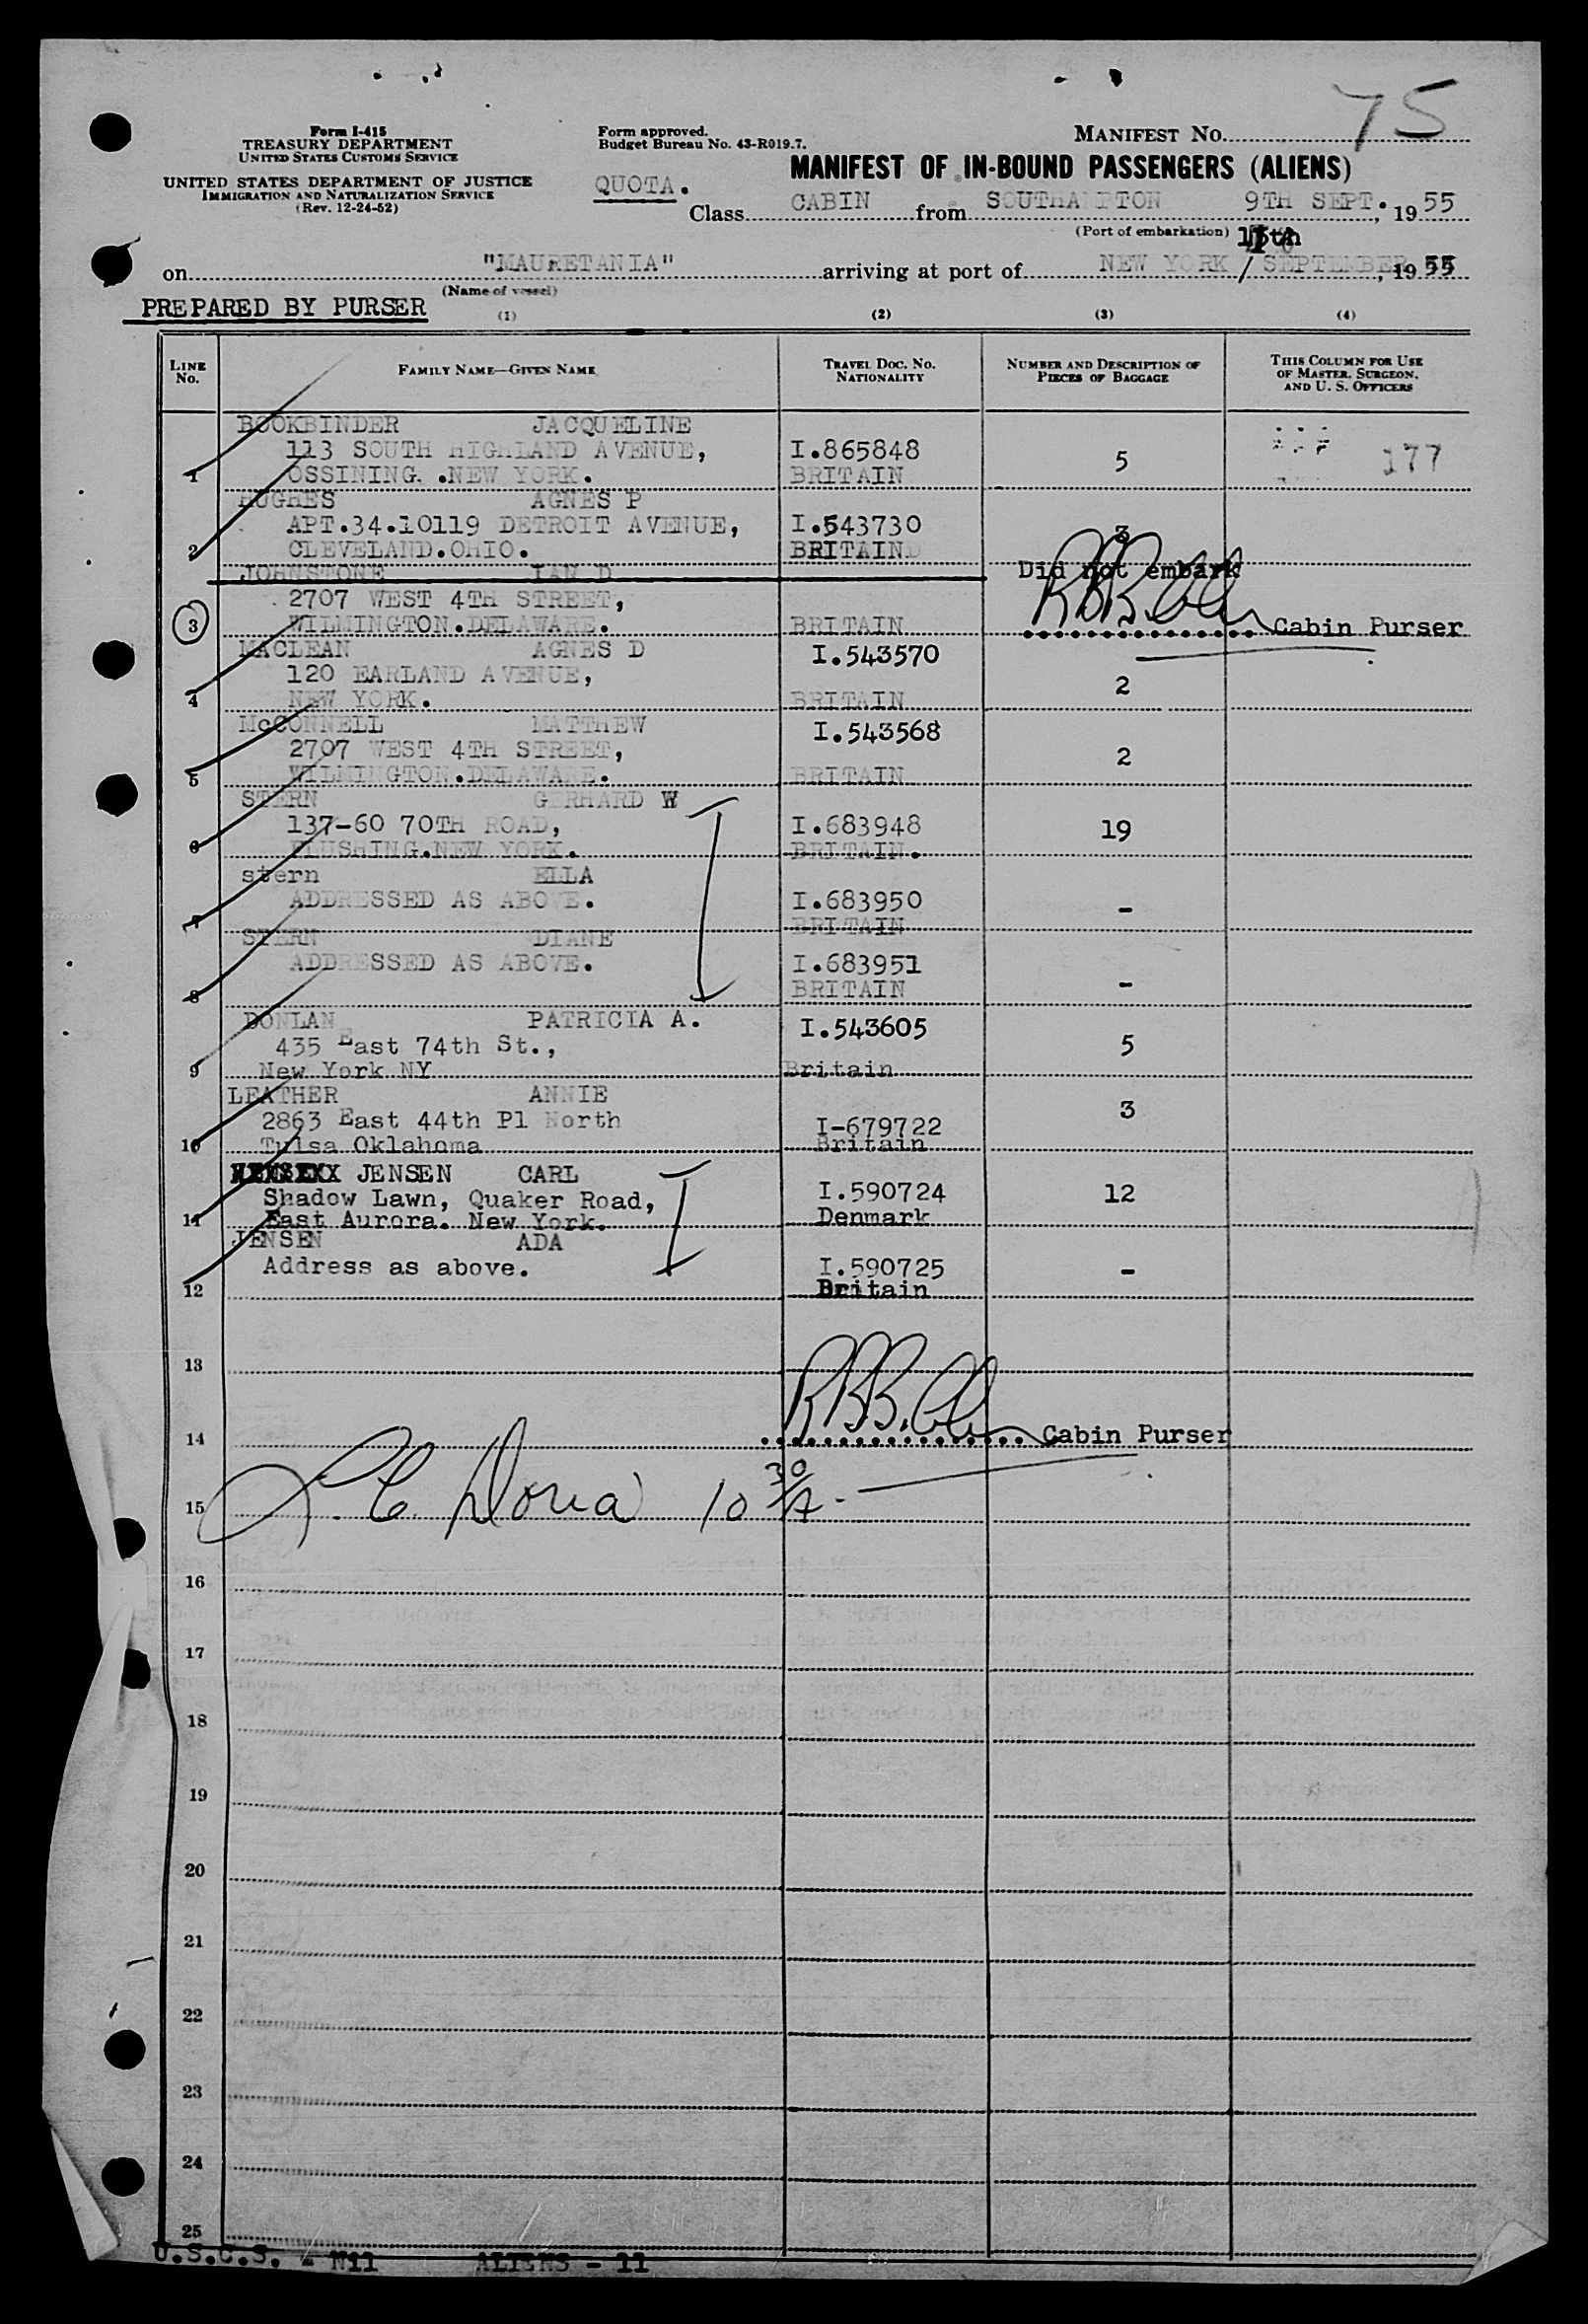 75
Form I-415
TREASURY DEPARTMENT
UNITED STATES CUSTOMS SERVICE
UNITED STATES DEPARTMENT OF JUSTICE
IMMIGRATION AND NATURALIZATION SERVICE
(Rev. 12-24-52)
Form approved.
Budget Bureau No. 43-R019.7.
MANIFEST No.
MANIFEST OF IN-BOUND PASSENGERS (ALIENS)
QUOTA.
Class CABIN from SOUTHAMPTON 9TH SEPT., 1955
(Port of embarkation)
on "MAURETANIA" arriving at port of NEW YORK / SEPTEMBER, 1955
(Name of vessel)
PREPARED BY PURSER
(1) (2) (3) (4)
LINE No. FAMILY NAME—GIVEN NAME TRAVEL DOC. No. NATIONALITY NUMBER AND DESCRIPTION OF PIECES OF BAGGAGE THIS COLUMN FOR USE OF MASTER, SURGEON, AND U. S. OFFICERS
BOOKBINDER JACQUELINE
113 SOUTH HIGHLAND AVENUE, I.865848 5 177
1 OSSINING.NEW YORK. BRITAIN
HUGHES AGNES P
APT.34.10119 DETROIT AVENUE, I.543730 3
2 CLEVELAND.OHIO. BRITAIN
JOHNSTONE IAN D Did not embark
2707 WEST 4TH STREET,
3 WILMINGTON.DELAWARE. BRITAIN Cabin Purser
MACLEAN AGNES D I.543570
120 EARLAND AVENUE, 2
4 NEW YORK. BRITAIN
McCONNELL MATTHEW I.543568
2707 WEST 4TH STREET, 2
5 WILMINGTON.DELAWARE. BRITAIN
STERN GERHARD W
137-60 70TH ROAD, I.683948 19
6 FLUSHING.NEW YORK. BRITAIN.
stern ELLA
ADDRESSED AS ABOVE. I.683950 -
7 BRITAIN
STERN DIANE
ADDRESSED AS ABOVE. I.683951
8 BRITAIN -
DONLAN PATRICIA A. I.543605
435 East 74th St., 5
9 New York NY Britain
LEATHER ANNIE
2863 East 44th Pl North I-679722 3
10 Tulsa Oklahoma Britain
JENSEN CARL
Shadow Lawn, Quaker Road, I.590724 12
11 East Aurora. New York. Denmark
JENSEN ADA
Address as above. I.590725 -
12 Britain
13
14 Cabin Purser
15
16
17
18
19
20
21
22
23
24
25
U.S.C.S. - Nil ALIENS - 11